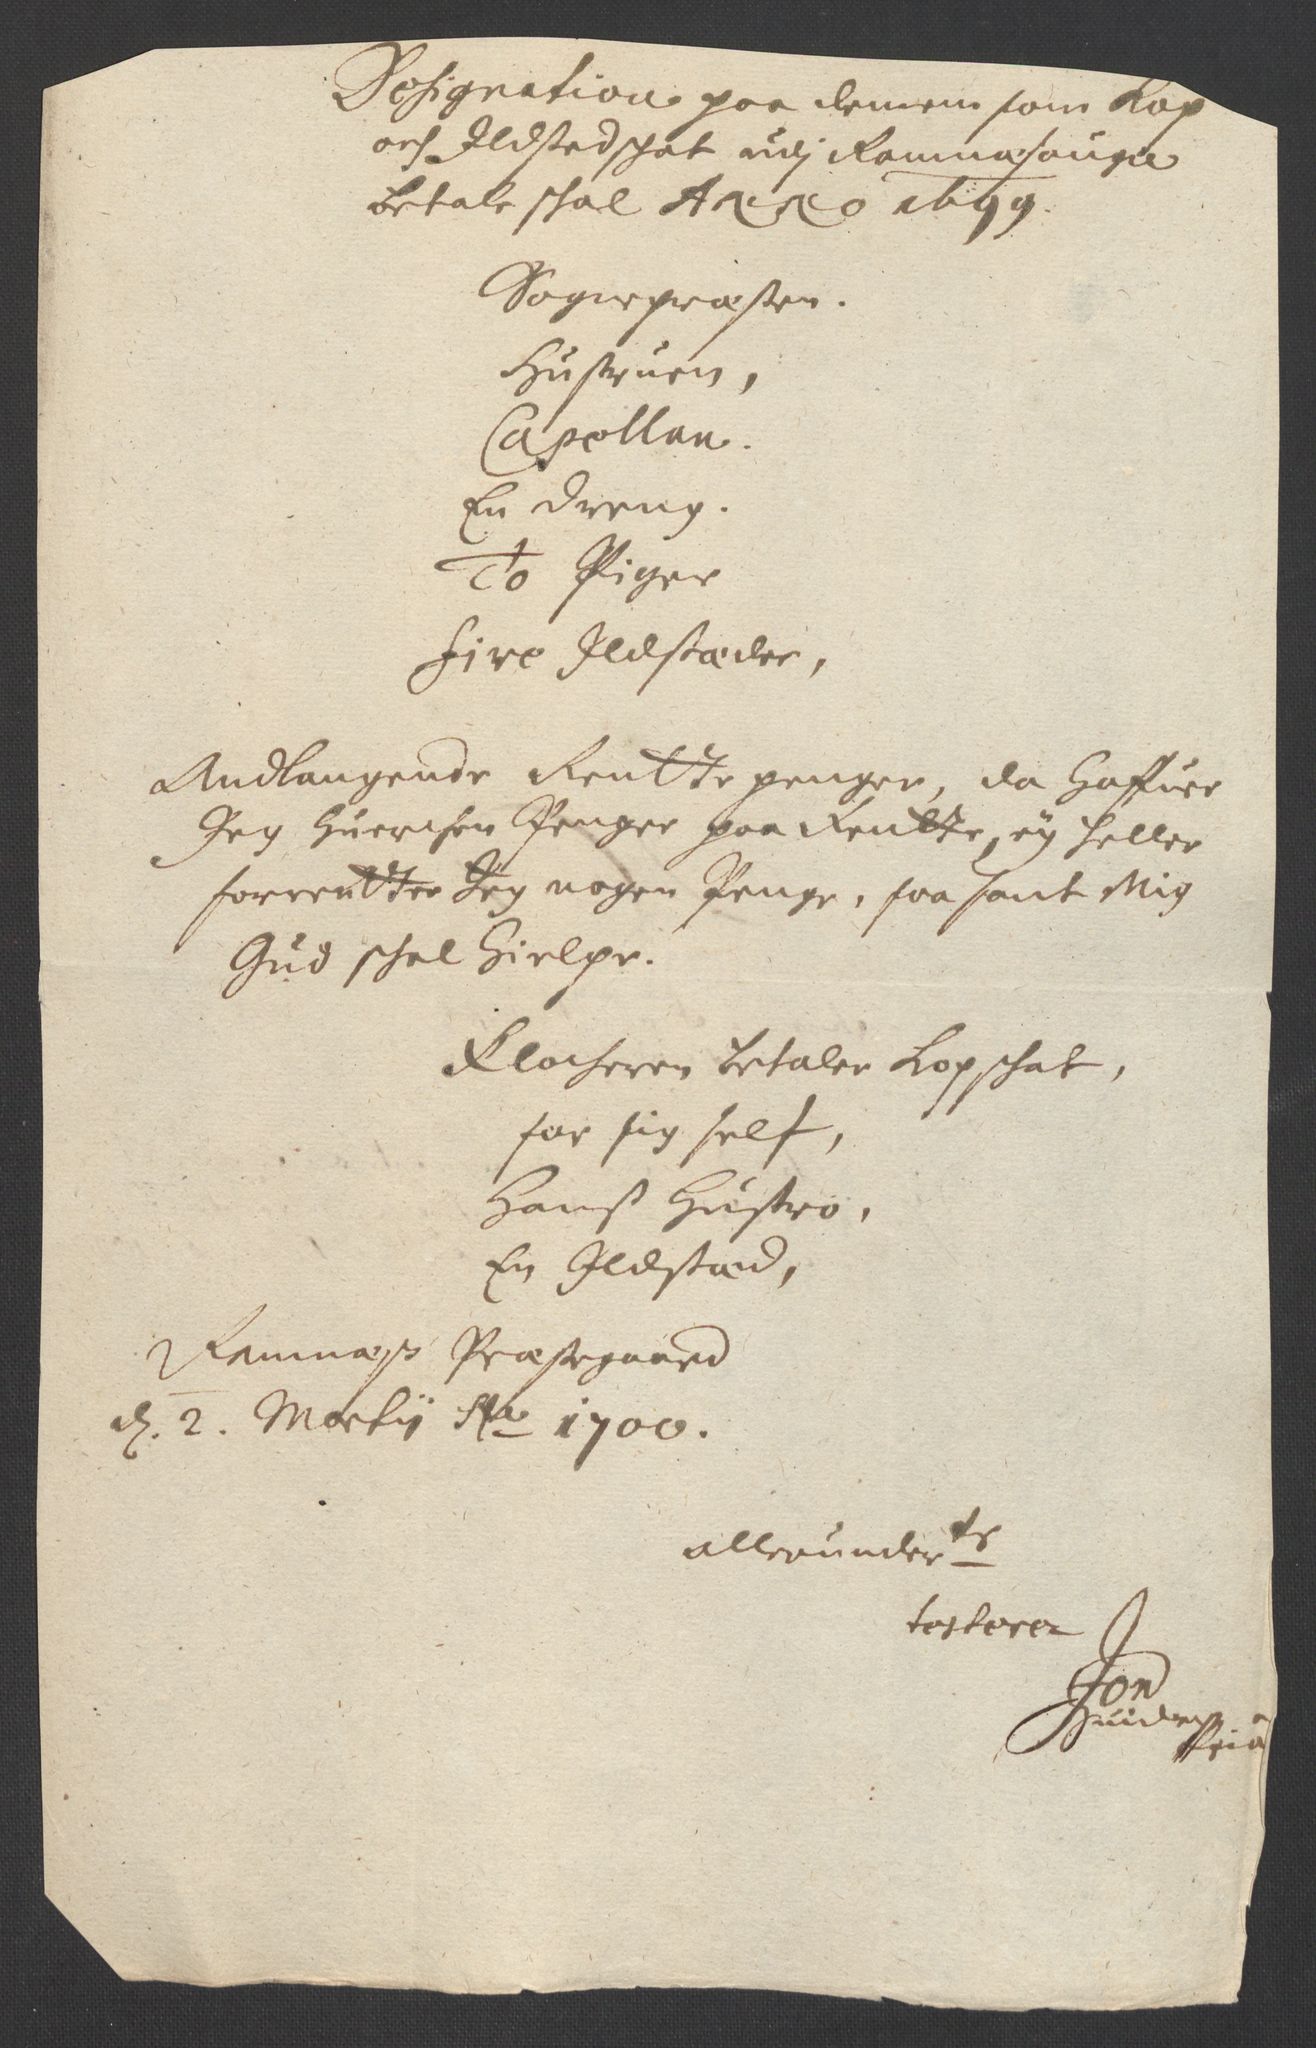 Designation paa dennem som Kop
och Ildstedschat udj Ramnæsougn
betale schal Anno 1699.
Sognepræsten.
Hustruen,
Capellan.
En dreng.
To Piger
Fire Ildstæder,
Andlangende Rentte penger, da haffuer
Jeg huerchen Penger paa Rentte, ey heller
forrentter Jeg nogen Penge, saa sant Mig
Gud schal hielpe.
Klocheren betaler Kopschat,
for sig self,
Hanß Hustro,
En Ildstæd,
Ramnæß Præstegaard
d. 2. Martij Ao 1700.
allerunderts
testerer
Jon